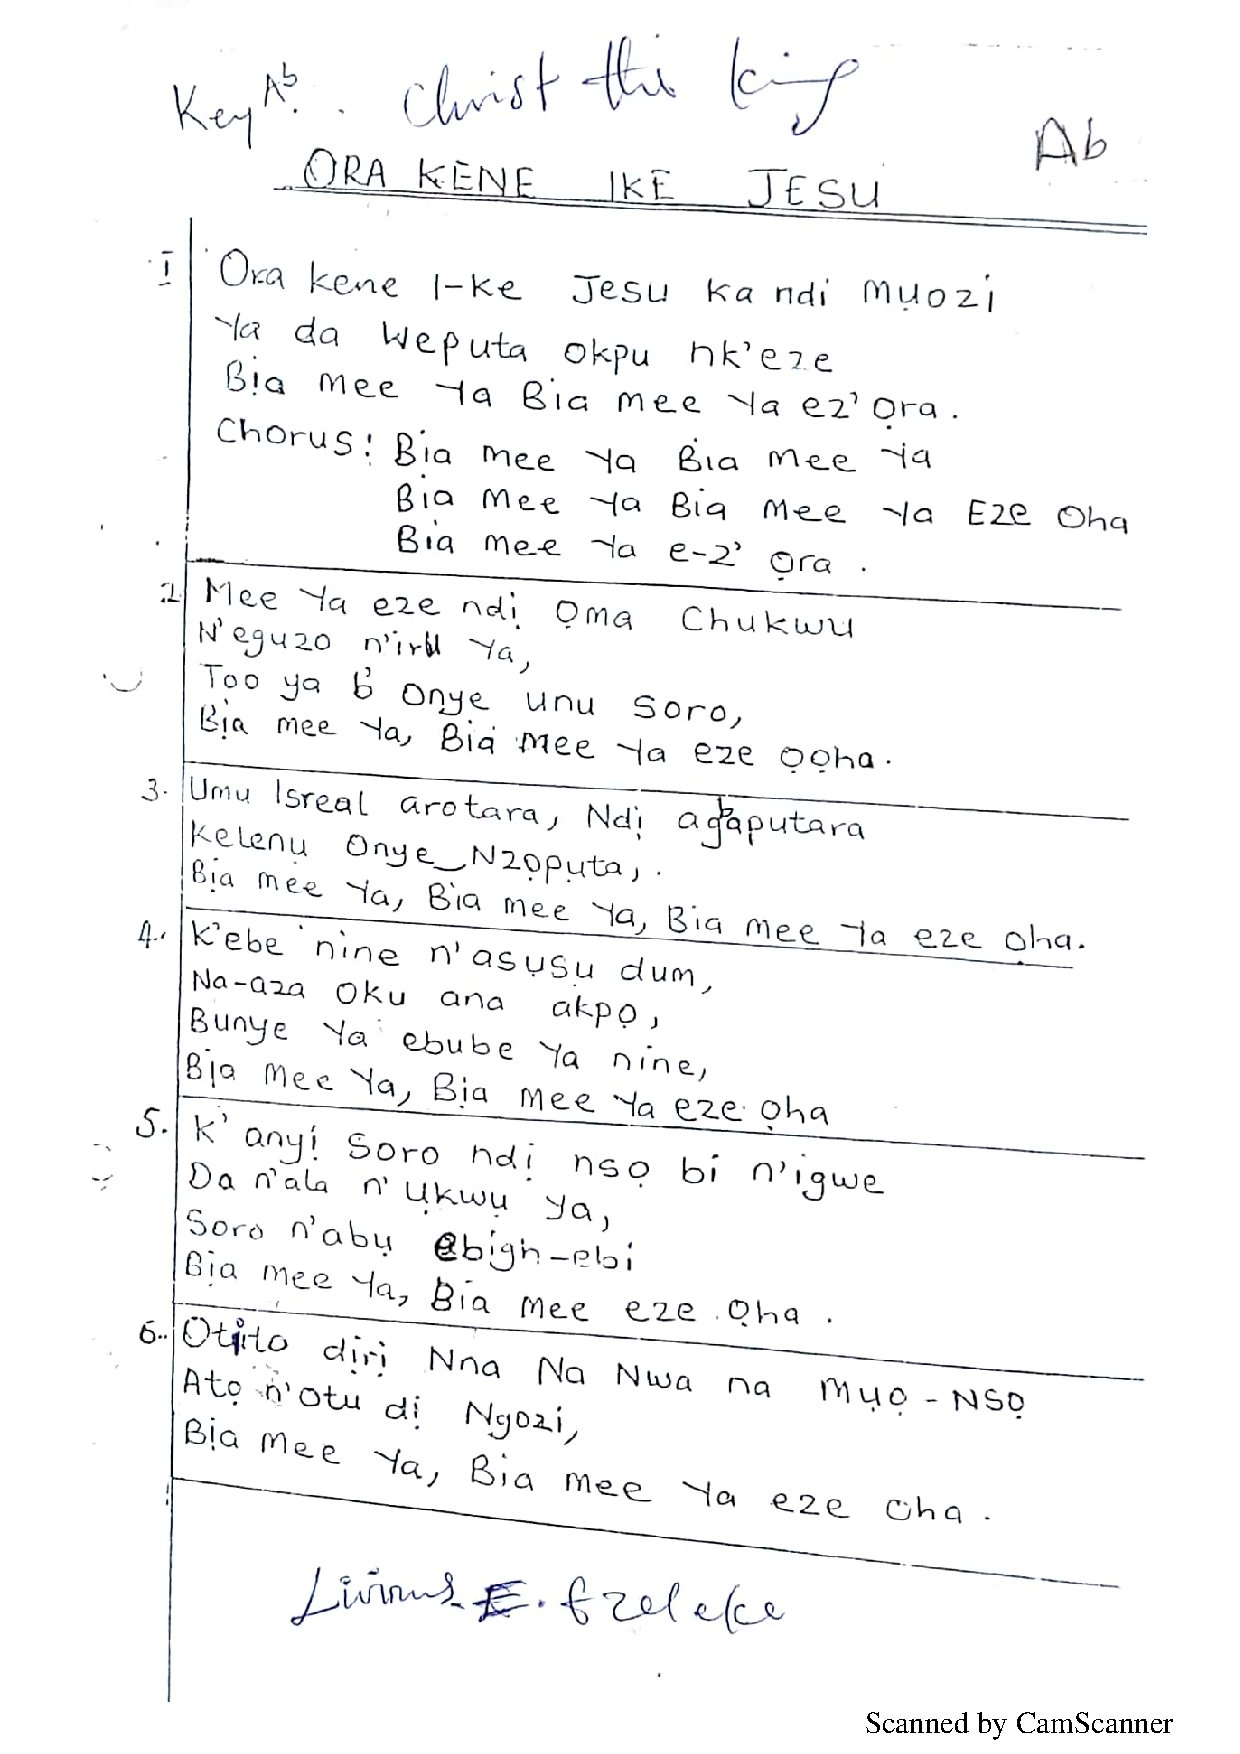 Key Ab. Christ the king
Ab
ORA KENE IKE JESU
1 Ora kene I-ke Jesu ka ndi mụozi
Ya da weputa okpu nk'eze
Bịa mee Ya Bia mee Ya ez' ọra.
Chorus: Bịa mee Ya Bia mee Ya
Bịa mee Ya Bịa mee Ya Eze Oha
Bia mee Ya e-z' ọra.
2. Mee Ya eze ndị ọma Chukwu
N'eguzo n'iru Ya,
Too ya b' onye unu soro,
Bịa mee Ya, Bia mee Ya eze ọọha.
3. Umu Isreal arotara, Ndị agbaputara
Kelenu Onye_Nzọpụta,.
Bịa mee Ya, Bia mee Ya, Bia mee Ya eze ọha.
4. K'ebe nine n'asụsụ dum,
Na-aza oku ana akpọ,
Bunye Ya ebube Ya nine,
Bịa mee Ya, Bịa mee Ya eze ọha
5. K' anyị soro ndị nsọ bi n'igwe
Da n'ala n' ụkwụ ya,
Soro n'abụ ebigh-ebi
Bịa mee Ya, Bia mee eze ọha.
6. Otito dịrị Nna Na Nwa na Mụọ-NSỌ
Atọ n'otu dị Ngozi,
Bịa mee Ya, Bia mee Ya eze oha.
Livinus E. Ezeleke
Scanned by CamScanner